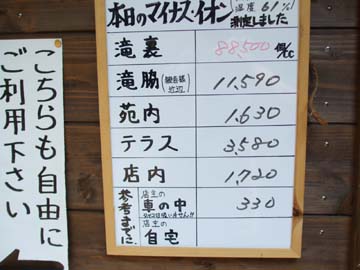 本日のマイナス・イオン
湿度 61%
測定しました
滝裏 88,500 個/cc
滝脇 11,590
苑内 1,630
テラス 3,580
店内 1,720
参考までに
店主の
車の中 330
店主の
自宅
こちらも自由に
ご利用下さい